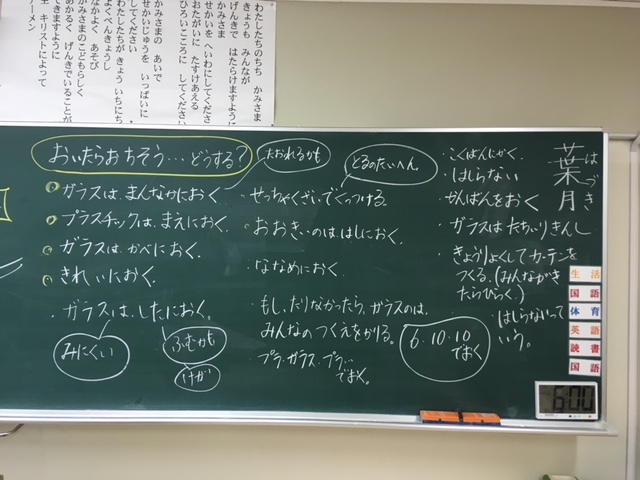 わたしたちのちち かみさま
きょうも みんなが
げんきで はたらけますように
かみさま
せかいを へいわにしてください
おたがいに たすけあえる
ひろいこころに してください
かみさまの あいで
せかいじゅうを いっぱいに
してください
わたしたちが きょう いちにち
よくべんきょうし
なかよく あそび
かみさまのこどもらしく
あかるく げんきでいることが
できますように
キリストによって
アーメン
おいたらおちそう…どうする?
たおれるかも
とるのたいへん
ガラスは、まんなかにおく。
プラスチックは、まえにおく。
ガラスは、かべにおく。
きれいにおく。
・ガラスは、したにおく。
みにくい
ふむかも
けが
・せっちゃくざいでくっつける。
・おおきいのは、はしにおく。
・ななめにおく。
・もし、たりなかったら、ガラスのは、
みんなのつくえをかりる。
・プラ・ガラス・プラ…
でおく。
6・10・10
でおく
・こくばんにかく。
・はしらない
・かんばんをおく
・ガラスはたちいりきんし
・きょうりょくしてカーテンを
つくる。(みんながき
たらひらく。)
・はしらないって
いう。
葉月
はづき
生活
国語
体育
英語
読書
国語
6:00